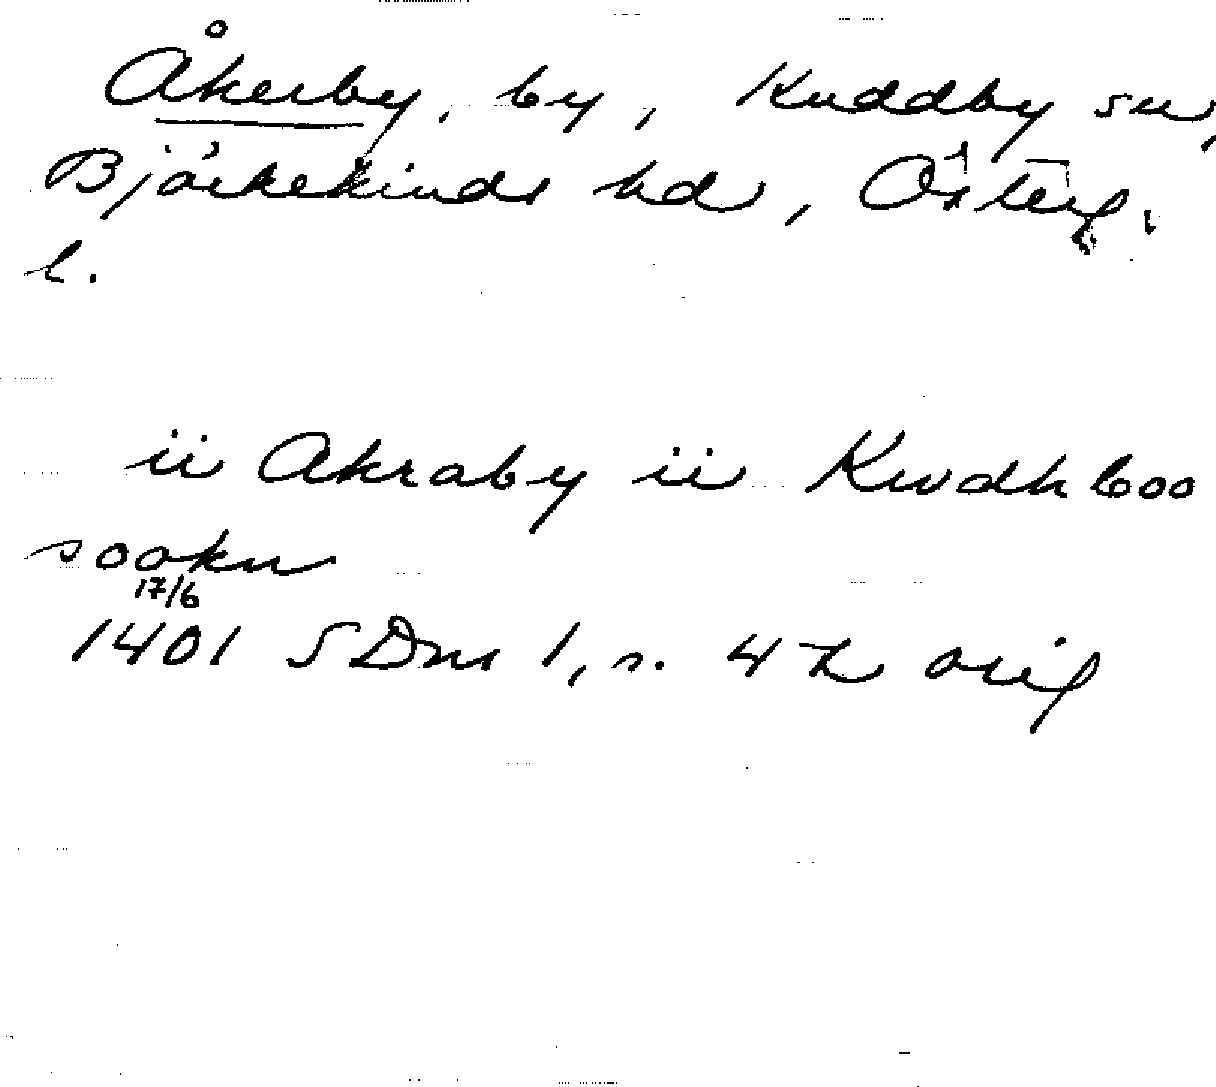 Åkerby, by, Kuddby sn,
Björkekinds hd, Österg.
l.
ii Akraby ii Kwdhboo
sookn
17/6
1401 SDns 1, s. 42 orig